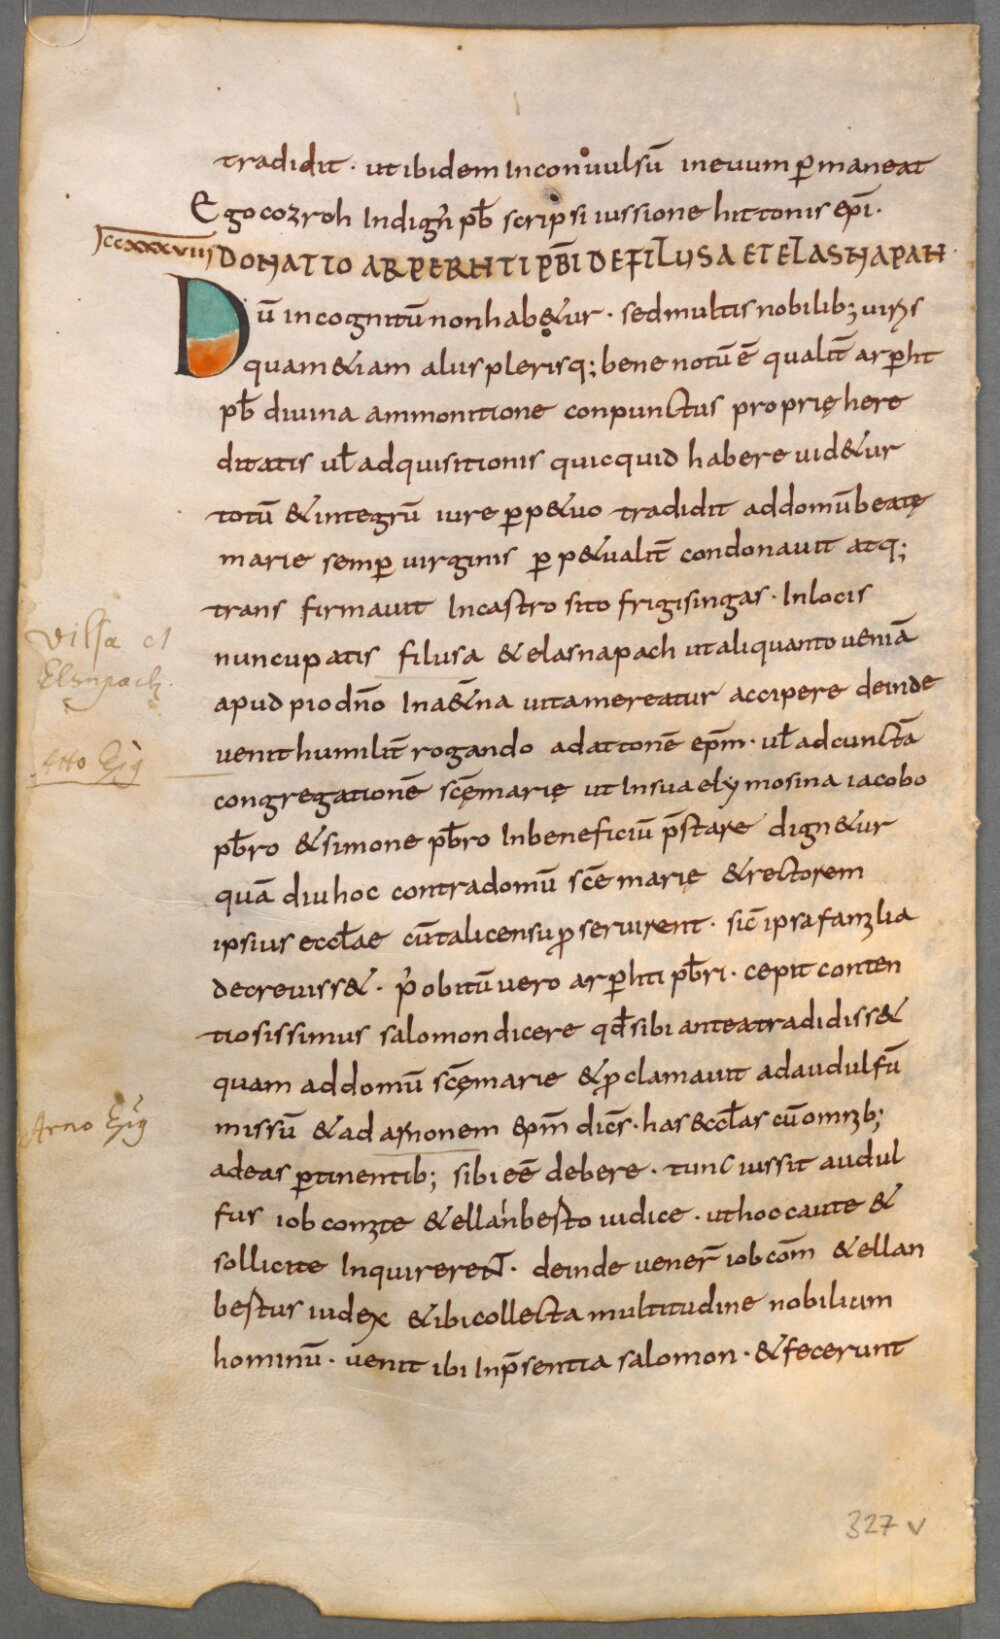 tradidit · ut ibidem Inconuulsū ineuum ꝑmaneat
Ego cozroh Indigń pƀ scripsi iussione hittonis ep̄i ·
CCXXXXVIII DONATIO ARPERHTI PB̄I DE FILUSA ET ELASNAPAH ·
Dū incognitū non hab&ur · sed multis nobilib; uiris
quam &iam aliis plerisq; bene notū ē qualit̄ arꝑht
pƀ diuina ammonitione conpunctus proprię here
ditatis uƚ adquisitionis quicquid habere uid&ur
totū & integrū iure ꝑp&uo tradidit ad domū beatę
marie semꝑ uirginis ꝑp&ualit̄ condonauit atq;
transfirmauit In castro sito frigisingas · In locis
nuncupatis filusa & elasnapach ut aliquanto ueniā
apud pio dn̄o In a&̄na uita mereatur accipere deinde
uenit humilit̄ rogando ad attonē ep̄m · uƚ ad cunctā
congregationē scę̄ marię ut In sua elymosina iacobo
pƀro & simone pƀro In beneficiū p̄stare dign&ur
quā diu hoc contra domū scē marię & rectorem
ipsius eccƚae cū tali censu ꝓseruirent · sic̄ ipsa familia
decreuiss& · ṕ obitū uero arꝑhti pƀri · cepit conten
tiosissimus salomon dicere qđ sibi antea tradidiss&
quam ad domū scę̄ marie & ꝓclamauit ad audulfū
missū & ad arnonem ep̄m dic̄s · has &ccƚas cū omib;
ad eas ꝑtinentib; sibi eē debere · tunc iussit audul
fus iob comite & ellanbesto iudice · ut hoc caute &
sollicite Inquirerent · deinde uener̄ iob com̄ & ellan
bestus iudex & ibi collecta multitudine nobilium
hominū · uenit ibi In p̄sentia salomon · & fecerunt
Vilsa et
Elsnpach
Atto Ep̄s
Arno Ep̄s
327 v